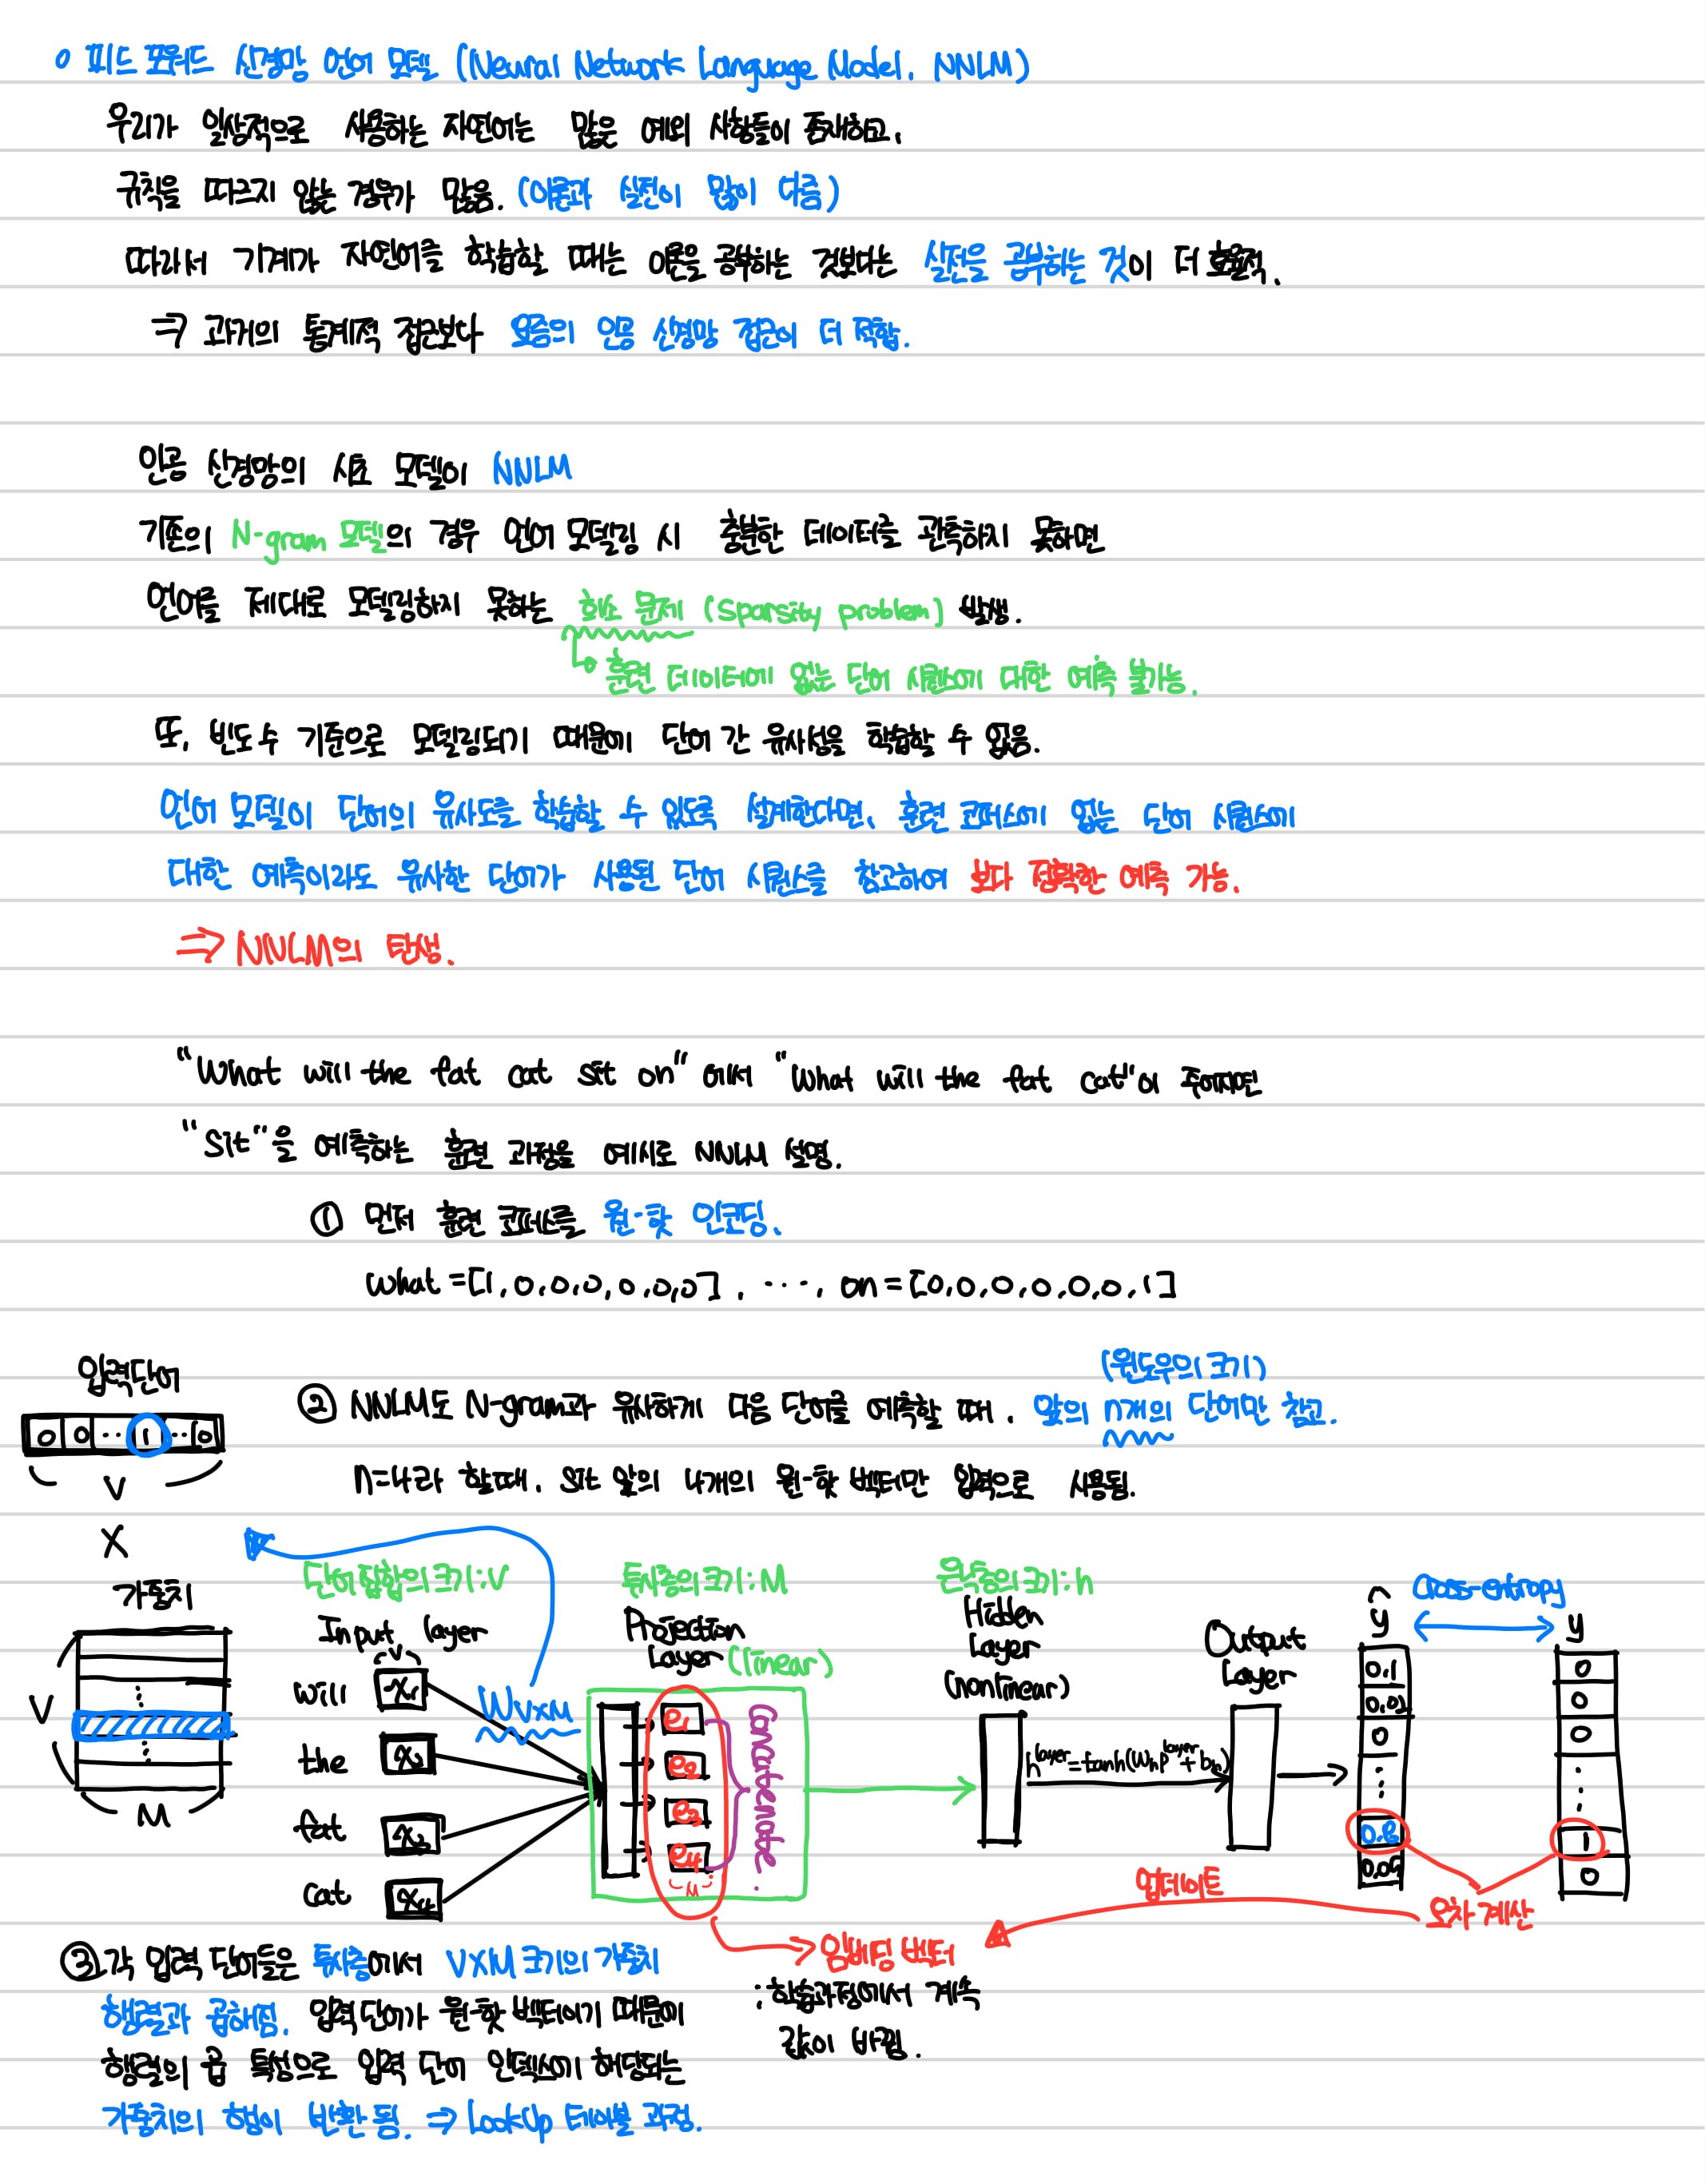 o 피드 포워드 신경망 언어 모델 (Neural Network Language Model, NNLM)
우리가 일상적으로 사용하는 자연어는 많은 예외 사항들이 존재하고,
규칙을 따르지 않는 경우가 많음. (이론과 실전이 많이 다름)
따라서 기계가 자연어를 학습할 때는 이론을 공부하는 것보다는 실전을 공부하는 것이 더 효율적.
⇒ 과거의 통계적 접근보다 요즘의 인공 신경망 접근이 더 적합.
인공 신경망의 시초 모델이 NNLM
기존의 N-gram 모델의 경우 언어 모델링 시 충분한 데이터를 관측하지 못하면
언어를 제대로 모델링하지 못하는 희소 문제 (Sparsity problem) 발생.
훈련 데이터에 없는 단어 시퀀스에 대한 예측 불가능.
또, 빈도수 기준으로 모델링되기 때문에 단어 간 유사성을 학습할 수 없음.
언어 모델이 단어의 유사도를 학습할 수 있도록 설계한다면, 훈련 코퍼스에 없는 단어 시퀀스에
대한 예측이라도 유사한 단어가 사용된 단어 시퀀스를 참고하여 보다 정확한 예측 가능.
⇒ NNLM의 탄생.
"What will the fat cat sit on" 에서 "What will the fat cat"이 주어지면
"Sit"을 예측하는 훈련 과정을 예시로 NNLM 설명.
① 먼저 훈련 코퍼스를 원-핫 인코딩.
what = [1, 0, 0, 0, 0, 0, 0], ..., on = [0, 0, 0, 0, 0, 0, 1]
(윈도우의 크기)
② NNLM도 N-gram과 유사하게 다음 단어를 예측할 때, 앞의 n개의 단어만 참고.
n=4라 할때, sit 앞의 4개의 원-핫 벡터만 입력으로 사용됨.
입력단어
0 0 ·· 1 ·· 0
V
X
가중치
V
M
단어 집합의 크기 : V
Input layer
V
will x₁
the x₂
fat x₃
cat x₄
W V×M
투사층의 크기 : M
Projection
Layer (linear)
e₁
e₂
e₃
e₄
M
Concatenate.
은닉층의 크기 : h
Hidden
Layer
(nonlinear)
h^layer = tanh(Wₕ p^layer + bₕ)
Output
Layer
ŷ
0.1
0.01
0
⋮
0.8
0.05
Cross-entropy
y
0
0
0
⋮
1
0
오차 계산
업데이트
임베딩 벡터
: 학습과정에서 계속
값이 바뀜.
③ 각 입력 단어들은 투사층에서 V×M 크기의 가중치
행렬과 곱해짐. 입력 단어가 원-핫 벡터이기 때문에
행렬의 곱 특성으로 입력 단어 인덱스에 해당되는
가중치의 행이 반환 됨. ⇒ LookUp 테이블 과정.